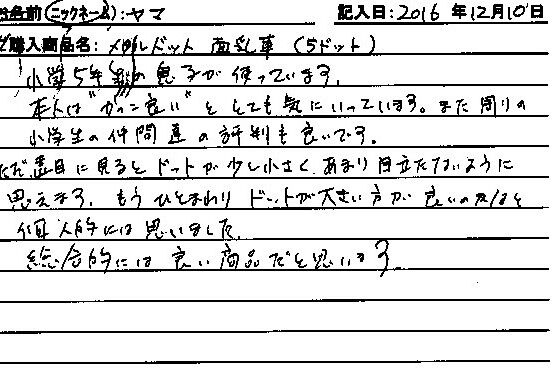 お名前(ニックネーム):ヤマ 記入日:2016年12月10日
ご購入商品名:メタルドット 面乳革 (5ドット)
小学5年の息子が使っています。
本人は"かっこ良い"ととても気にいっています。また周りの
小学生の仲間達の評判も良いです。
ただ見るとドットが少し小さく、あまり目立たないように
思えます。もうひとまわりドットが大きい方が良いのではと
個人的には思いました。
総合的には良い商品だと思います